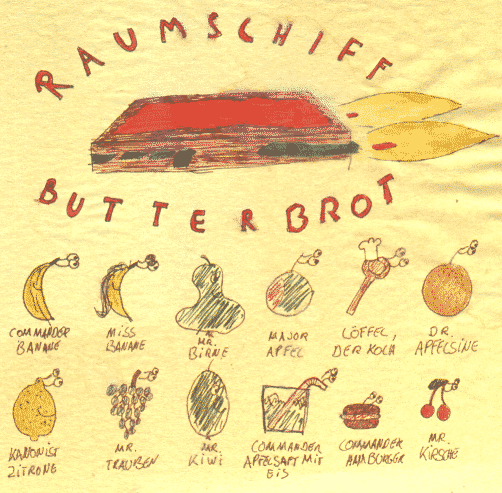 RAUMSCHIFF
BUTTERBROT
COMMANDER
BANANE
MISS
BANANE
MR.
BIRNE
MAJOR
APFEL
LÖFFEL,
DER KOCH
DR.
APFELSINE
KANONIST
ZITRONE
MR.
TRAUBEN
MR.
KIWI
COMMANDER
APFELSAFT MIT
EIS
COMMANDER
HAMBURGER
MR.
KIRSCHE